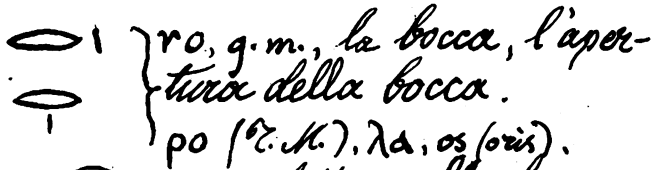 𓂋𓏤 ro, g.m., la bocca, l'aper-
𓂋𓏤 tura della bocca.
po (T.M.), λα, os (oris).